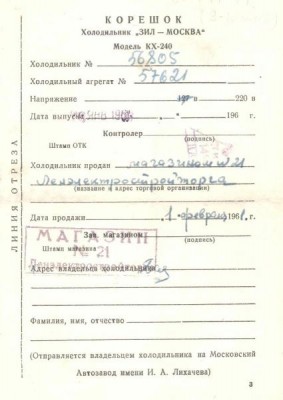 КОРЕШОК
Холодильник „ЗИЛ—МОСКВА“
Модель КХ-240
Холодильник № 56805
Холодильный агрегат № 57621
Напряжение 127 в 220 в
Дата выпуска 196 г.
Контролер
Штамп ОТК (подпись)
Холодильник продан магазином № 21
Ленэлектростройторга
(название и адрес торговой организации)
Дата продажи 1 февраля 1961 г.
Зав. магазином
Штамп магазина (подпись)
МАГАЗИН
№ 21
Адрес владельца холодильника
Фамилия, имя, отчество
(Отправляется владельцем холодильника на Московский
Автозавод имени И. А. Лихачева)
3
ЛИНИЯ ОТРЕЗА